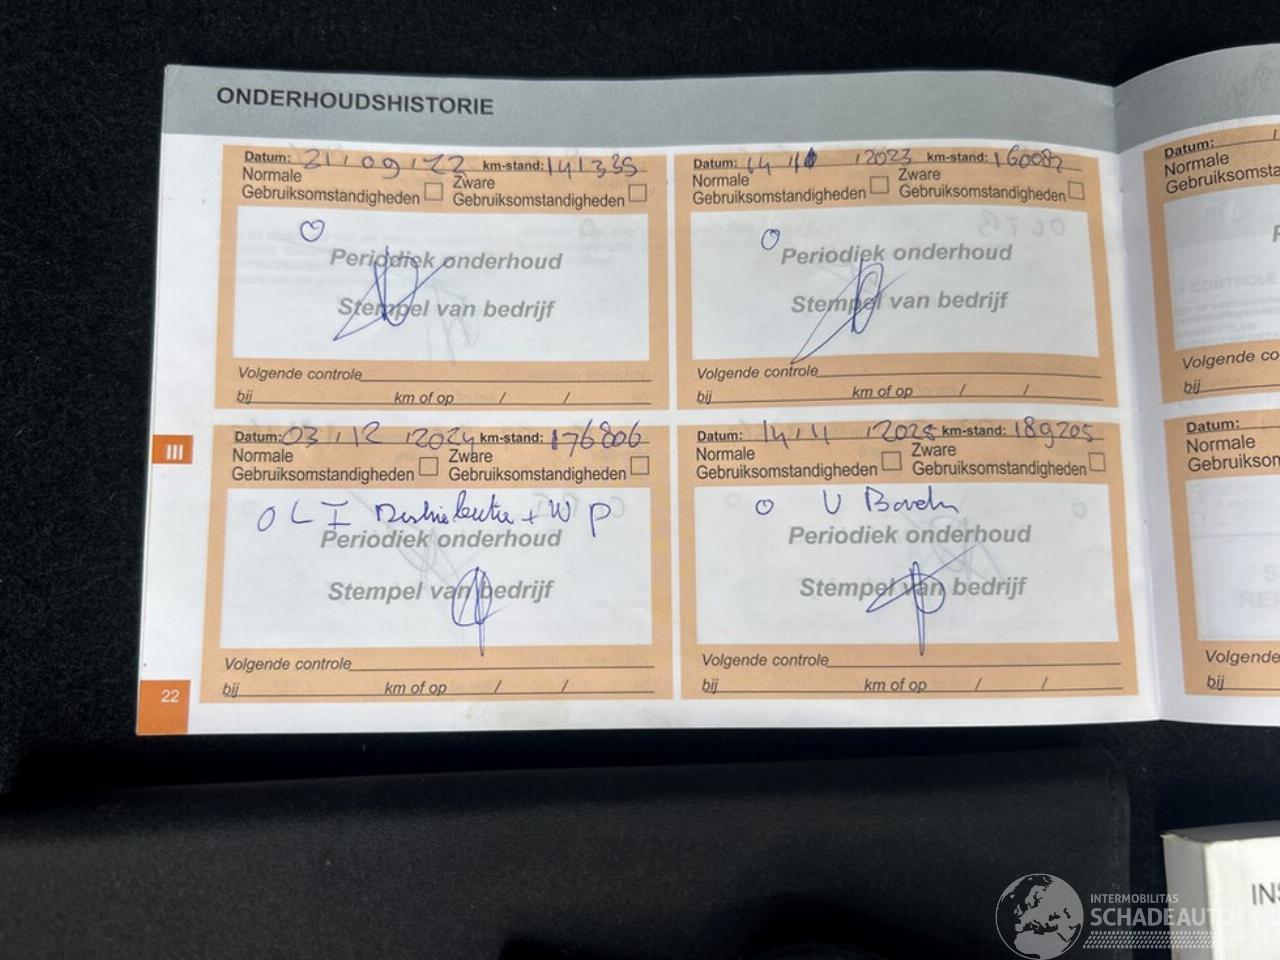 ONDERHOUDSHISTORIE
Datum: 21 / 09 / 22 km-stand: 141335
Normale Gebruiksomstandigheden
Zware Gebruiksomstandigheden
O
Periodiek onderhoud
Stempel van bedrijf
Volgende controle
bij km of op / /
Datum: 14 / 2023 km-stand: 160082
Normale Gebruiksomstandigheden
Zware Gebruiksomstandigheden
O
Periodiek onderhoud
Stempel van bedrijf
Volgende controle
bij km of op / /
III
Datum: 03 / 12 / 2024 km-stand: 176806
Normale Gebruiksomstandigheden
Zware Gebruiksomstandigheden
O L I Distributie + W P
Periodiek onderhoud
Stempel van bedrijf
Volgende controle
bij km of op / /
Datum: 14 / 11 / 2025 km-stand: 189205
Normale Gebruiksomstandigheden
Zware Gebruiksomstandigheden
O V
Periodiek onderhoud
Stempel van bedrijf
Volgende controle
bij km of op / /
22
Datum:
Normale
Volgende co
bij
Datum:
Normale
Volgende
bij
INS
INTERMOBILITAS
SCHADEAUTOS.NL